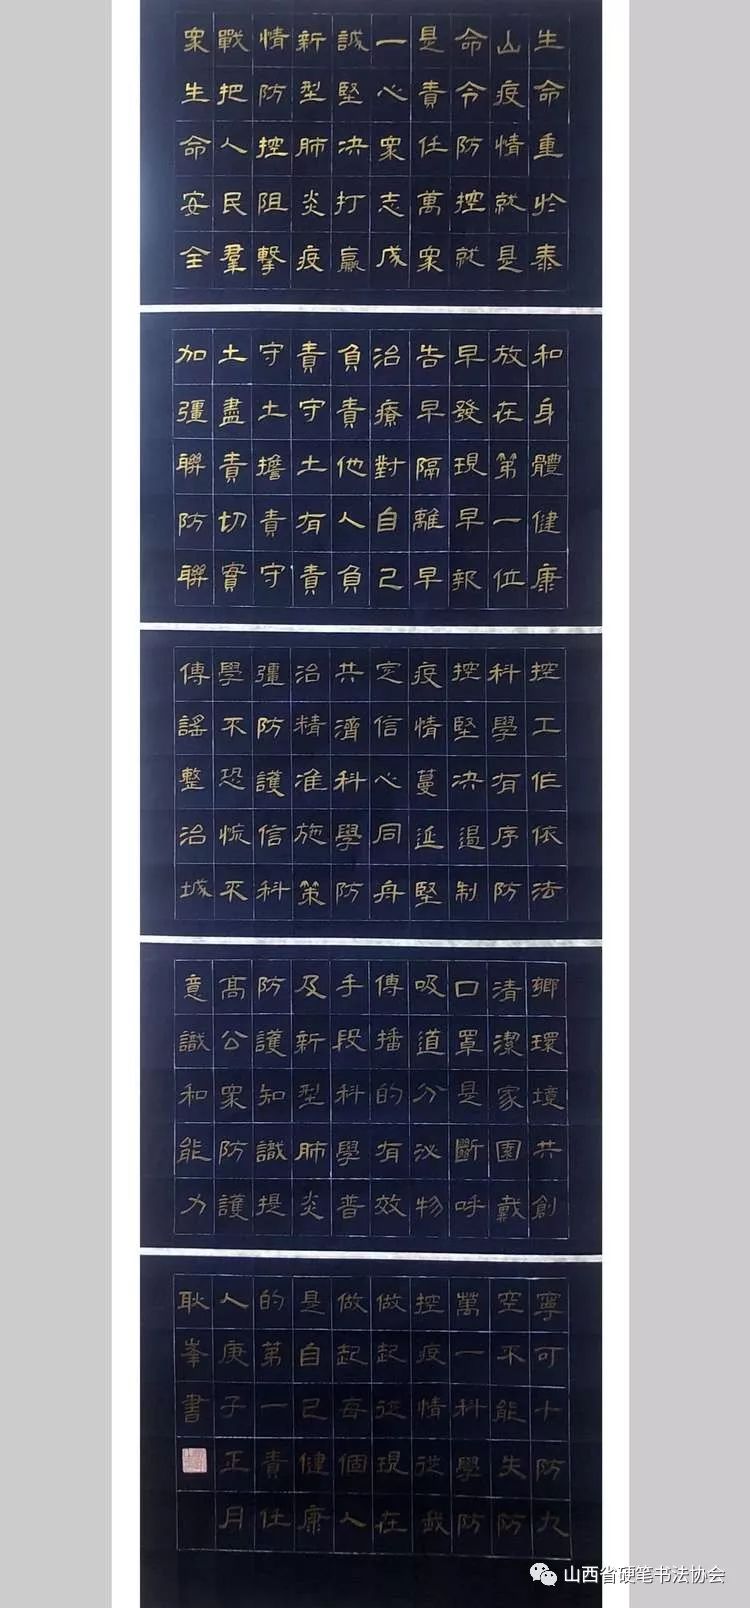 生命重於泰
山疫情就是
命令防控就
是責任萬衆
一心衆志成
誠堅决打贏
新型肺炎疫
情防控阻擊
戰把人民羣
衆生命安全
和身體健康
放在第一位
早發現早報
告早隔離早
治療對自己
負責他人負
責守土有責
守土擔責守
土盡責切實
加彊聯防聯
控工作依法
科學有序防
控堅决遏制
疫情蔓延堅
定信心同舟
共濟科學防
治精准施策
彊防護信科
學不恐慌不
傳謠整治城
鄉環境共創
清潔家園戴
口罩是斷呼
吸道分泌物
傳播的有效
手段科學普
及新型肺炎
防護知識提
高公衆防護
意識和能力
寧可十防九
空不能失防
萬一科學防
控疫情從我
做起從現在
做起每個人
是自己健康
的第一責任
人庚子正月
耿峯書
山西省硬笔书法协会